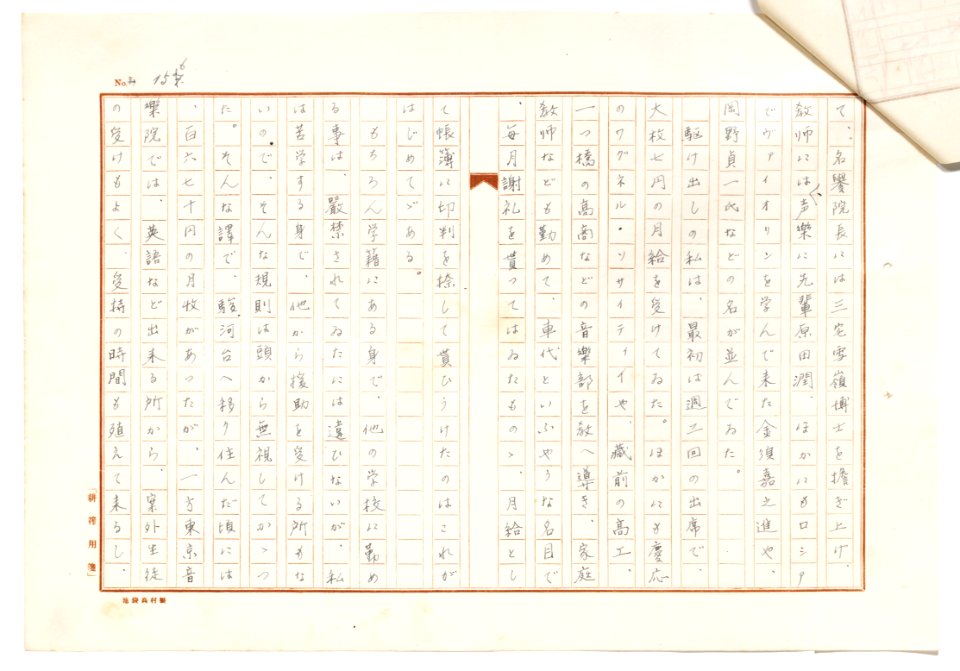 No. 156
て、名譽院長には三宅雪嶺博士を擔ぎ上げ、
教師には声樂に先輩原田潤、ほかにもロシア
でヴァイオリンを学んで来た金須嘉之進や、
岡野貞一氏などの名が並んでゐた。
駆け出しの私は、最初は週二回の出席で、
大枚七円の月給を受けてゐた。ほかにも慶応
のワグネル・ソサイティイや、藏前の高工、
一つ橋の高商などの音樂部を教へ導き、家庭
教師なども勤めて、車代といふやうな名目で
、毎月謝礼を貰つてはゐたものゝ、月給とし
て帳簿に印判を捺して貰ひうけたのはこれが
はじめてゞある。
もちろん学籍にある身で、他の学校に勤め
る事は、嚴禁されてゐたには違ひないが、私
は苦学する身じ、他から援助を受ける所もな
いので、そんな規則は頭から無視してかゝつ
た。そんな譯で、駿河台へ移り住んだ頃には
、百六七十円の月收があつたが、一方東京音
樂院では、英語など出来る所から、案外生徒
の受けもよく、受持の時間も殖えて来るし、
「耕筰用箋」
池袋高村製